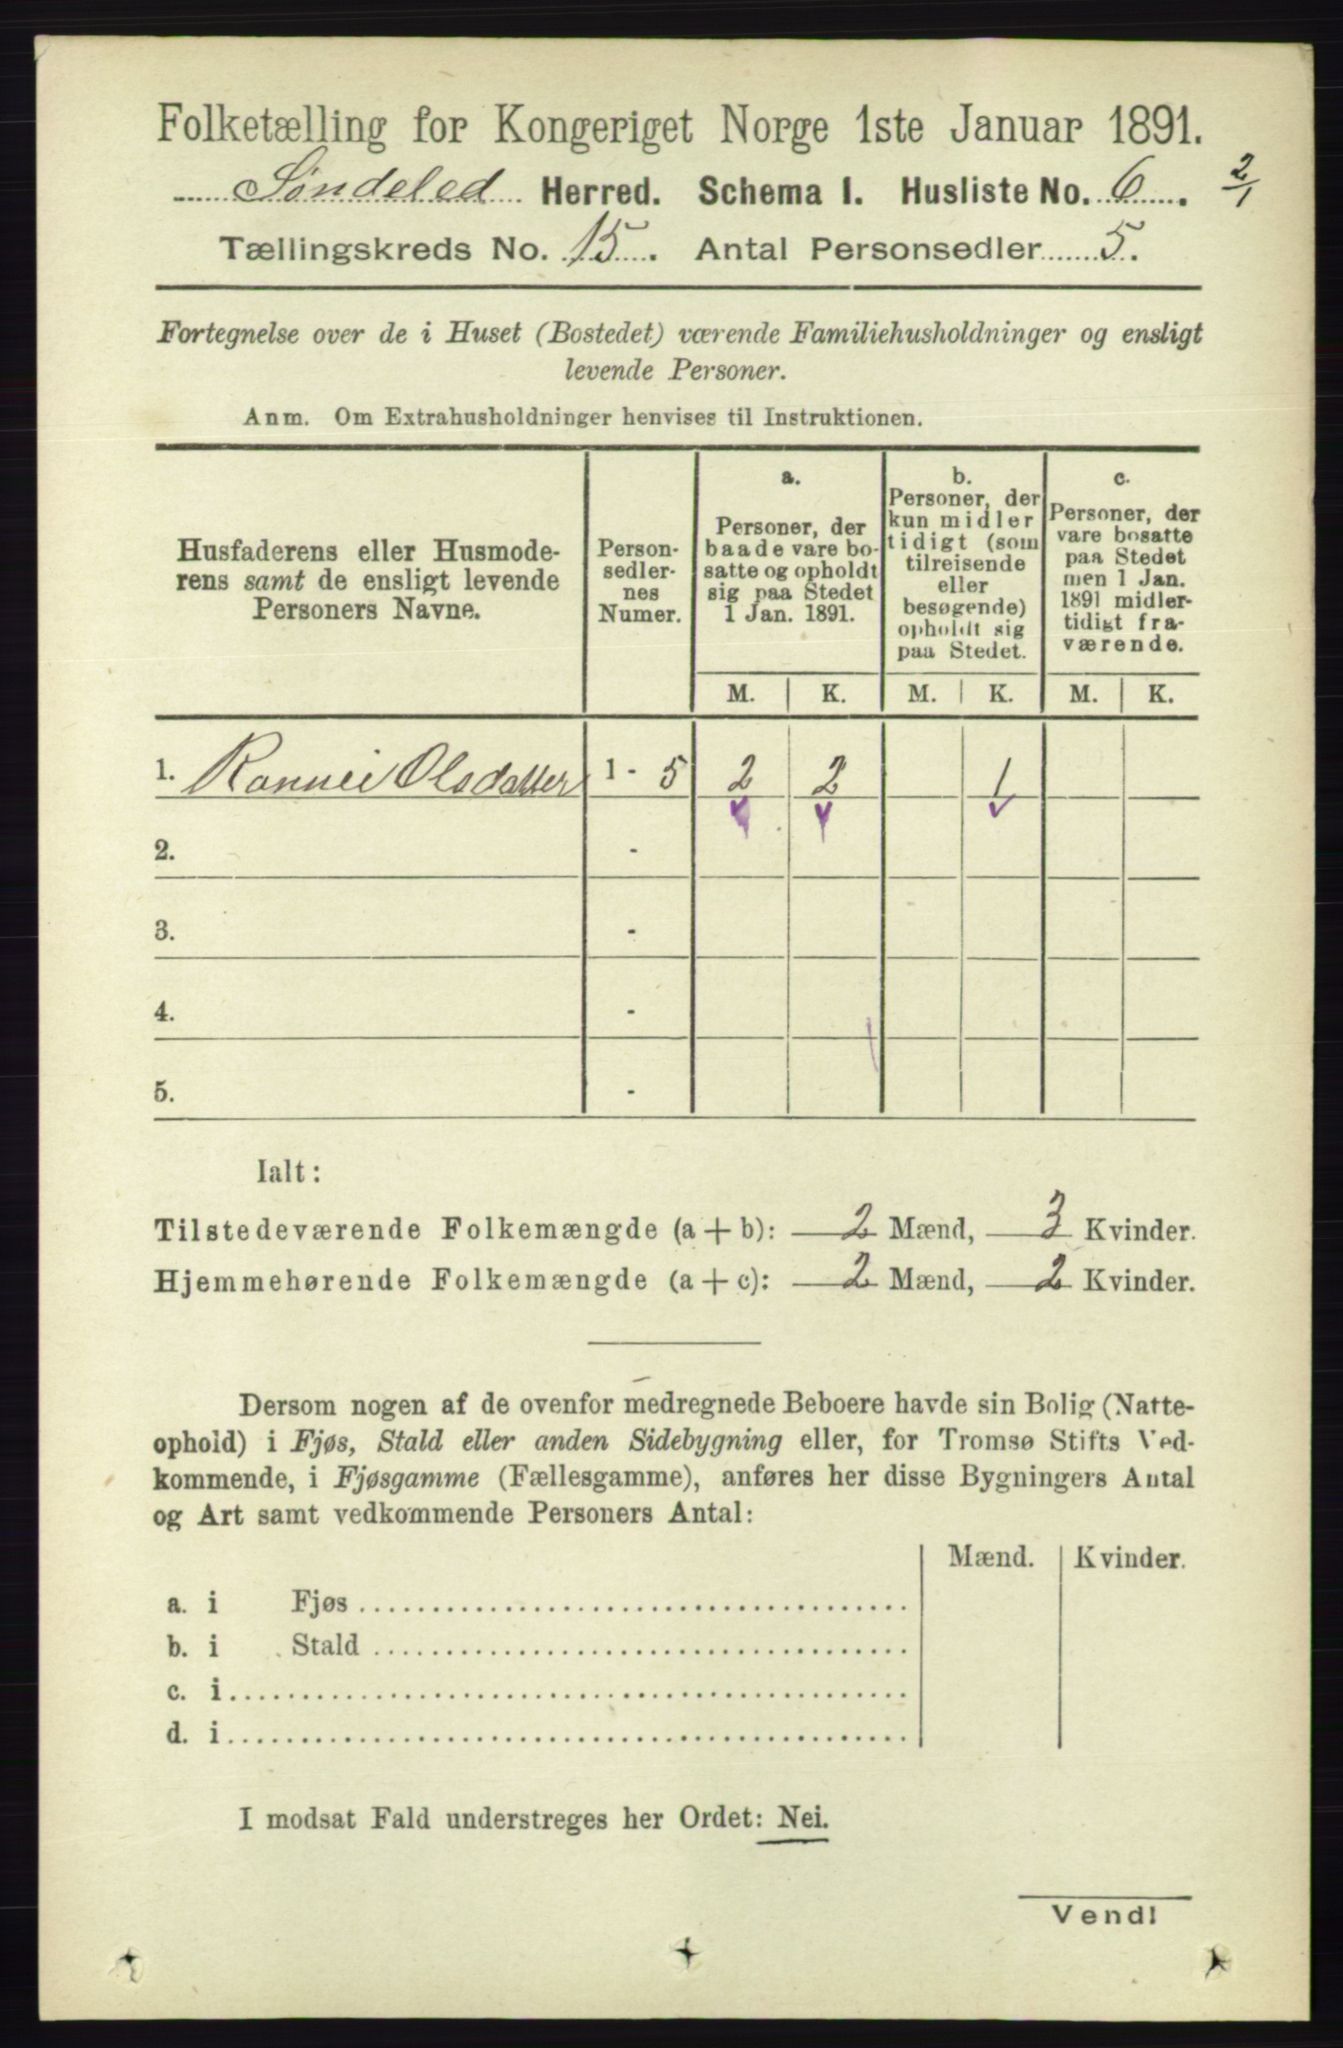 Folketælling for Kongeriget Norge 1ste Januar 1891.
Søndeled Herred. Schema I. Husliste No. 6. 2/1
Tællingskreds No. 15. Antal Personsedler 5.
Fortegnelse over de i Huset (Bostedet) værende Familiehusholdninger og ensligt
levende Personer.
Anm. Om Extrahusholdninger henvises til Instruktionen.
Husfaderens eller Husmode-
rens samt de ensligt levende
Personers Navne.
Person-
sedler-
nes
Numer.
a.
Personer, der
baade vare bo-
satte og opholdt
sig paa Stedet
1 Jan. 1891.
b.
Personer, der
kun midler
tidigt (som
tilreisende
eller
besøgende)
opholdt sig
paa Stedet.
c.
Personer, der
vare bosatte
paa Stedet
men 1 Jan.
1891 midler-
tidigt fra-
værende.
M. K. M. K. M. K.
1. Rannei Olsdatter 1 - 5 2 2 1
2. -
3. -
4. -
5. -
Ialt:
Tilstedeværende Folkemængde (a + b): 2 Mænd, 3 Kvinder.
Hjemmehørende Folkemængde (a + c): 2 Mænd, 2 Kvinder.
Dersom nogen af de ovenfor medregnede Beboere havde sin Bolig (Natte-
ophold) i Fjøs, Stald eller anden Sidebygning eller, for Tromsø Stifts Ved-
kommende, i Fjøsgamme (Fællesgamme), anføres her disse Bygningers Antal
og Art samt vedkommende Personers Antal:
Mænd. Kvinder.
a. i Fjøs
b. i Stald
c. i
d. i
I modsat Fald understreges her Ordet: Nei.
Vend!